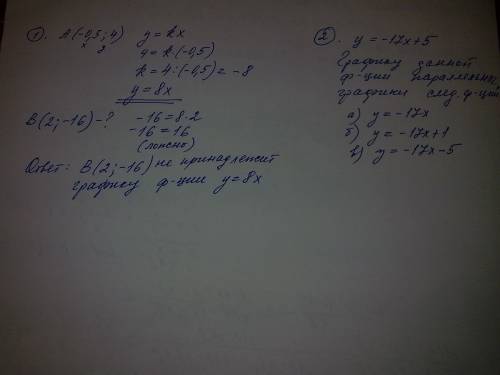 1. A(-0,5; 4) y = kx
x y
4 = k·(-0,5)
k = 4:(-0,5) = -8
y = 8x
B(2; -16) - ? -16 = 8·2
-16 = 16
(ложно)
Ответ: B(2; -16) не принадлежит
графику ф-ции y = 8x
2. y = -17x+5
Графику данной
ф-ции параллельны
графики след. ф-ций
а) y = -17x
б) y = -17x+1
в) y = -17x-5